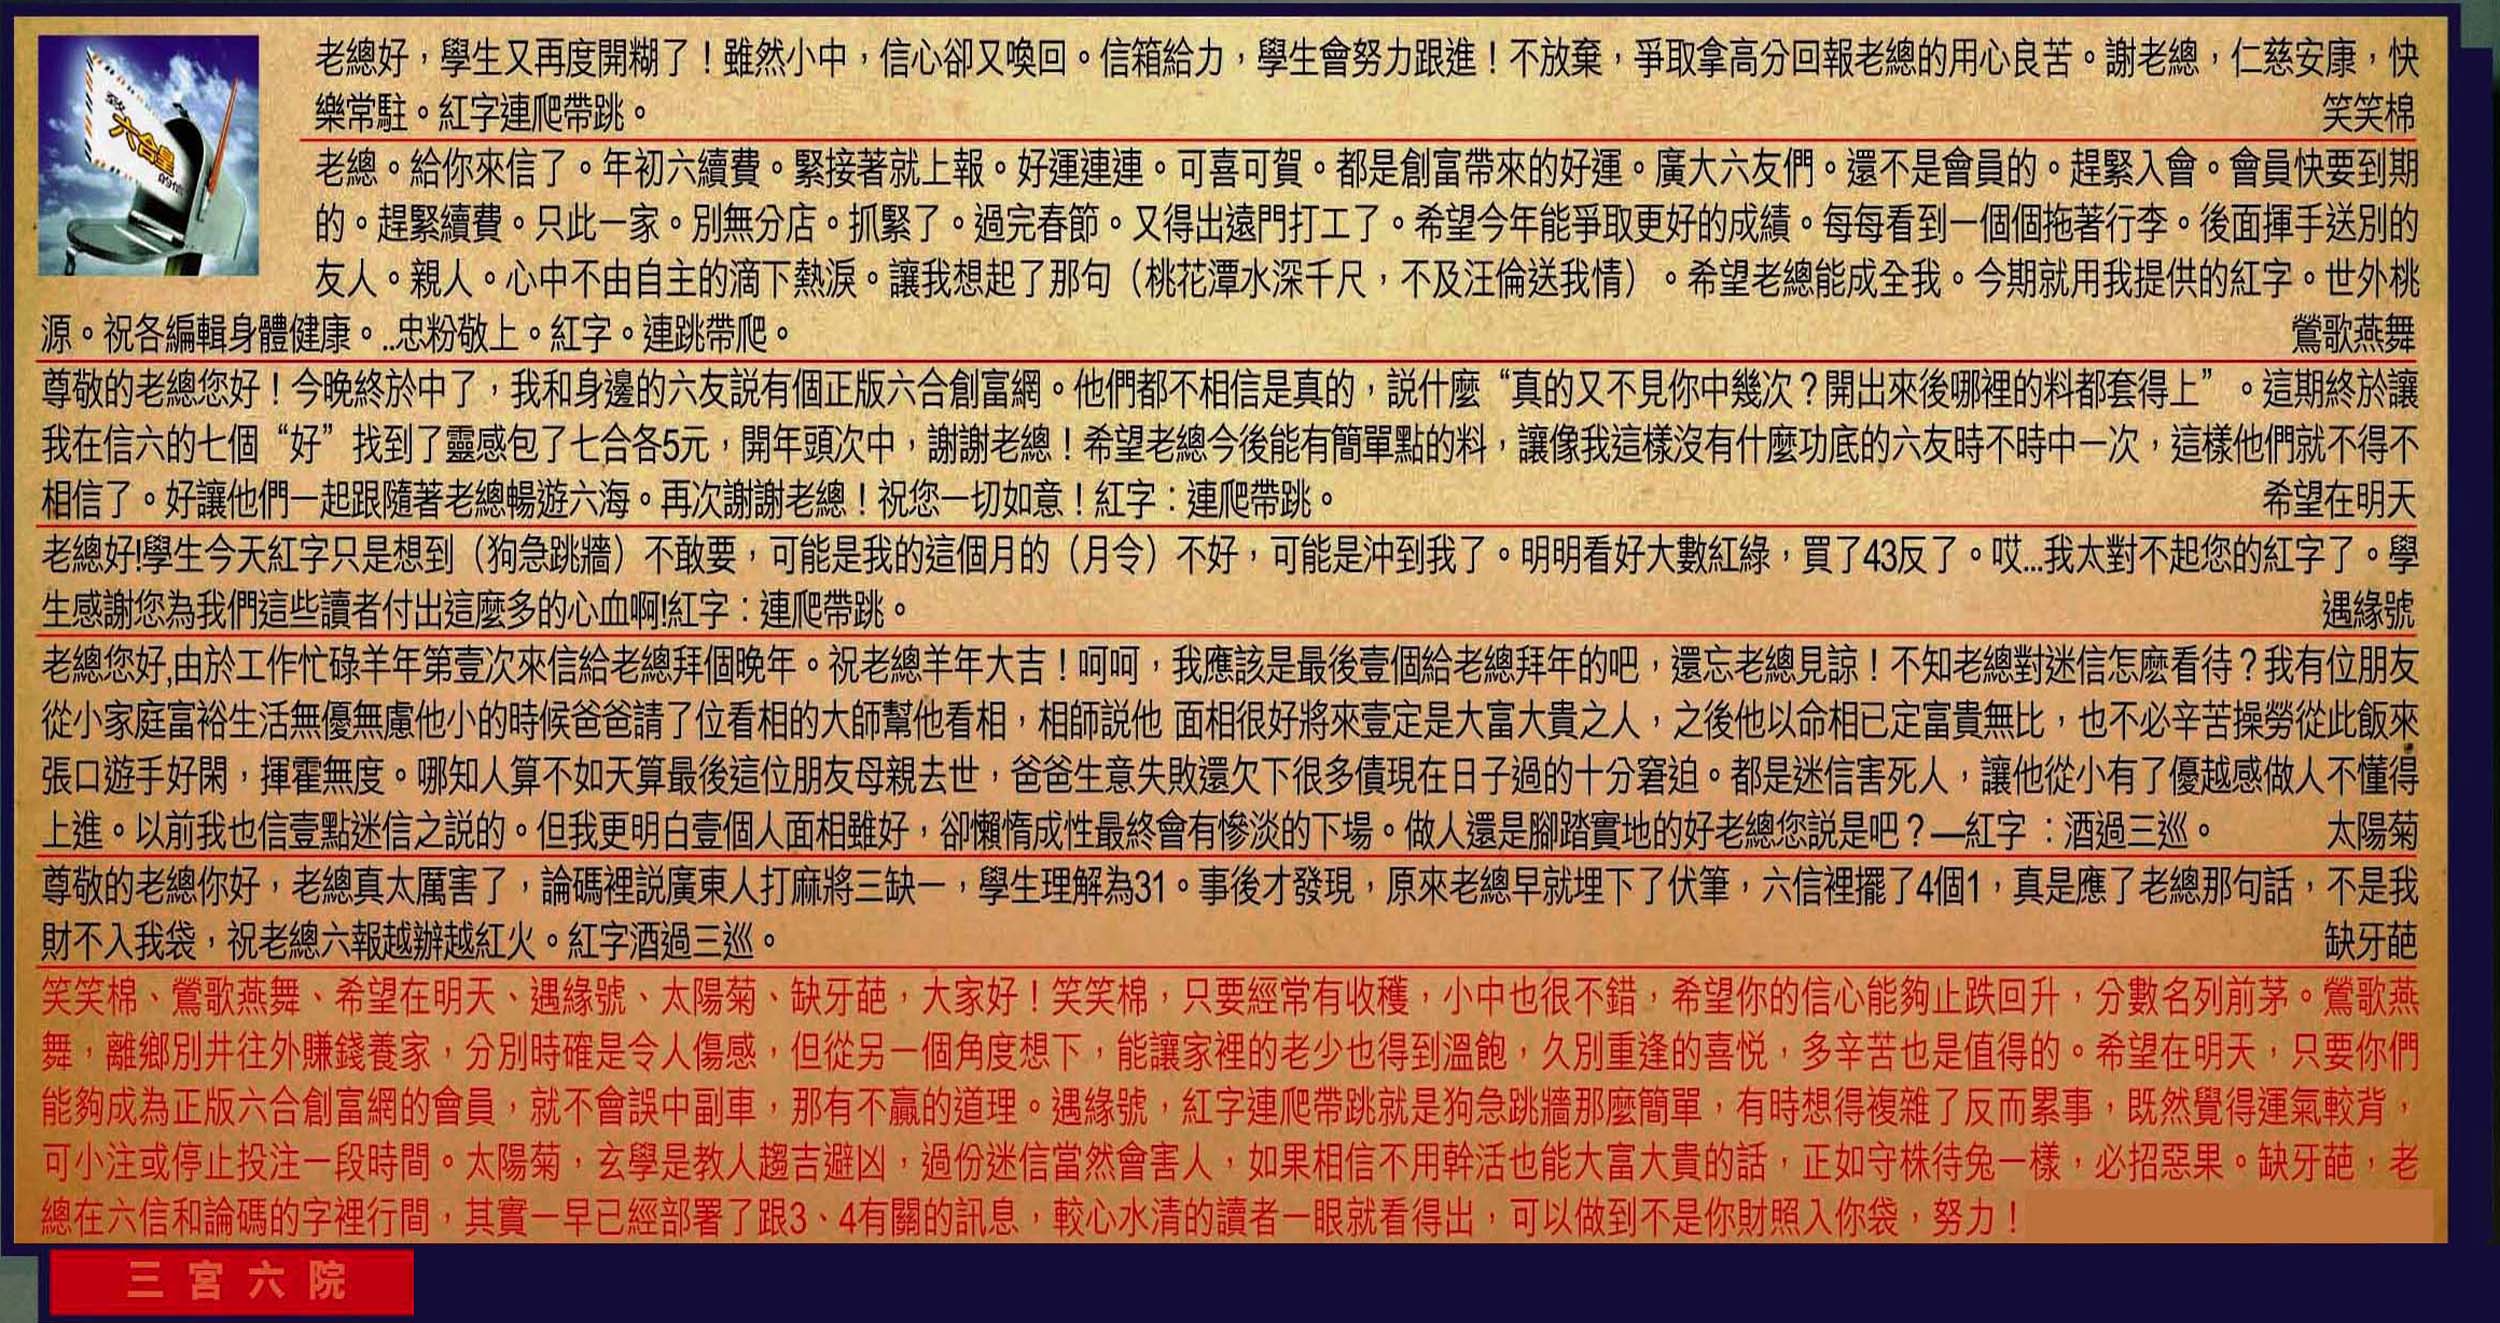 致
六合皇
的信
老總好，學生又再度開糊了！雖然小中，信心卻又喚回。信箱給力，學生會努力跟進！不放棄，爭取拿高分回報老總的用心良苦。謝老總，仁慈安康，快
樂常駐。紅字連爬帶跳。 笑笑棉
老總。給你來信了。年初六續費。緊接著就上報。好運連連。可喜可賀。都是創富帶來的好運。廣大六友們。還不是會員的。趕緊入會。會員快要到期
的。趕緊續費。只此一家。別無分店。抓緊了。過完春節。又得出遠門打工了。希望今年能爭取更好的成績。每每看到一個個拖著行李。後面揮手送別的
友人。親人。心中不由自主的滴下熱淚。讓我想起了那句（桃花潭水深千尺，不及汪倫送我情）。希望老總能成全我。今期就用我提供的紅字。世外桃
源。祝各編輯身體健康。..忠粉敬上。紅字。連跳帶爬。 鶯歌燕舞
尊敬的老總您好！今晚終於中了，我和身邊的六友説有個正版六合創富網。他們都不相信是真的，説什麼“真的又不見你中幾次？開出來後哪裡的料都套得上”。這期終於讓
我在信六的七個“好”找到了靈感包了七合各5元，開年頭次中，謝謝老總！希望老總今後能有簡單點的料，讓像我這樣沒有什麼功底的六友時不時中一次，這樣他們就不得不
相信了。好讓他們一起跟隨著老總暢遊六海。再次謝謝老總！祝您一切如意！紅字：連爬帶跳。 希望在明天
老總好!學生今天紅字只是想到（狗急跳牆）不敢要，可能是我的這個月的（月令）不好，可能是沖到我了。明明看好大數紅綠，買了43反了。哎...我太對不起您的紅字了。學
生感謝您為我們這些讀者付出這麼多的心血啊!紅字：連爬帶跳。 遇緣號
老總您好,由於工作忙碌羊年第壹次來信給老總拜個晚年。祝老總羊年大吉！呵呵，我應該是最後壹個給老總拜年的吧，還忘老總見諒！不知老總對迷信怎麽看待？我有位朋友
從小家庭富裕生活無優無慮他小的時候爸爸請了位看相的大師幫他看相，相師説他 面相很好將來壹定是大富大貴之人，之後他以命相已定富貴無比，也不必辛苦操勞從此飯來
張口遊手好閑，揮霍無度。哪知人算不如天算最後這位朋友母親去世，爸爸生意失敗還欠下很多債現在日子過的十分窘迫。都是迷信害死人，讓他從小有了優越感做人不懂得
上進。以前我也信壹點迷信之説的。但我更明白壹個人面相雖好，卻懶惰成性最終會有慘淡的下場。做人還是腳踏實地的好老總您説是吧？—紅字 ：酒過三巡。 太陽菊
尊敬的老總你好，老總真太厲害了，論碼裡説廣東人打麻將三缺一，學生理解為31。事後才發現，原來老總早就埋下了伏筆，六信裡擺了4個1，真是應了老總那句話，不是我
財不入我袋，祝老總六報越辦越紅火。紅字酒過三巡。 缺牙葩
笑笑棉、鶯歌燕舞、希望在明天、遇緣號、太陽菊、缺牙葩，大家好！笑笑棉，只要經常有收穫，小中也很不錯，希望你的信心能夠止跌回升，分數名列前茅。鶯歌燕
舞，離鄉別井往外賺錢養家，分別時確是令人傷感，但從另一個角度想下，能讓家裡的老少也得到溫飽，久別重逢的喜悅，多辛苦也是值得的。希望在明天，只要你們
能夠成為正版六合創富網的會員，就不會誤中副車，那有不贏的道理。遇緣號，紅字連爬帶跳就是狗急跳牆那麼簡單，有時想得複雜了反而累事，既然覺得運氣較背，
可小注或停止投注一段時間。太陽菊，玄學是教人趨吉避凶，過份迷信當然會害人，如果相信不用幹活也能大富大貴的話，正如守株待兔一樣，必招惡果。缺牙葩，老
總在六信和論碼的字裡行間，其實一早已經部署了跟3、4有關的訊息，較心水清的讀者一眼就看得出，可以做到不是你財照入你袋，努力！
三宮六院